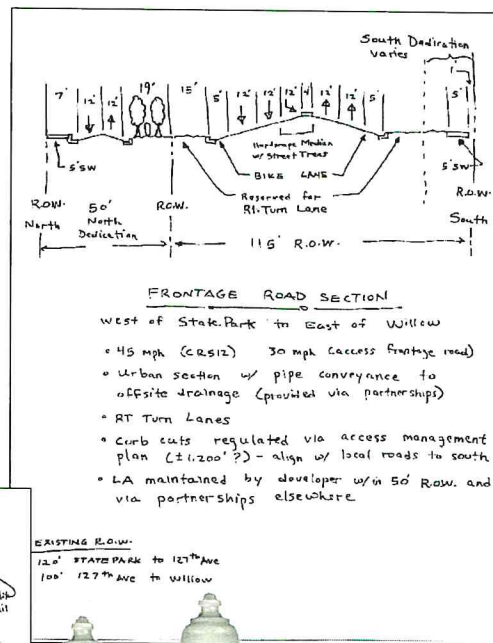 South Dedication
varies
1'
7' 12' 12' 19' 15' 5' 12' 12' 12' 4' 12' 12' 5' 5'
Hardscape Median
w/ Street Trees
5'SW
BIKE LANE
5'SW
Reserved for
Rt. Turn Lane
R.O.W. R.O.W. R.O.W.
North South
50'
North
Dedication
115' R.O.W.
FRONTAGE ROAD SECTION
west of State Park to East of Willow
• 45 mph (CR512) 30 mph (access frontage road)
• Urban section w/ pipe conveyance to
offsite drainage (provided via partnerships)
• RT Turn Lanes
• Curb cuts regulated via access management
plan (±1,200' ?) - align w/ local roads to south
• LA maintained by developer w/in 50' R.O.W. and
via partnerships elsewhere
EXISTING R.O.W.
120' STATE PARK to 127th Ave
100' 127th Ave to Willow